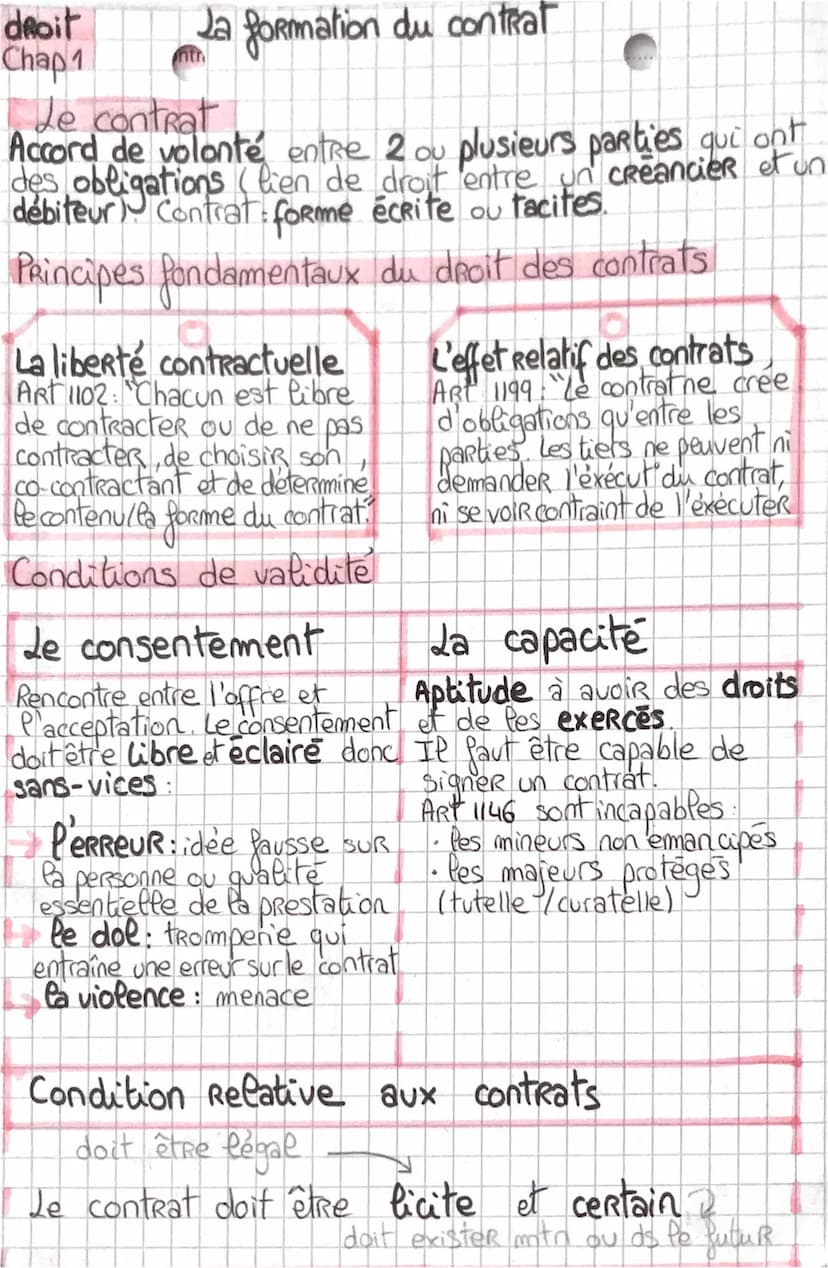 droit
La formation du contrat
Chap 1
ntr
Le contrat
Accord de volonté entre 2 ou plusieurs parties qui ont
des obligations (lien de droit entre un créancier et un
débiteur). Contrat : forme écrite ou tacites.
Principes fondamentaux du droit des contrats
La liberté contractuelle
Art 1102 : "Chacun est libre
de contracter ou de ne pas
contracter, de choisir son
co-contractant et de détermine
le contenu/la forme du contrat."
L'effet relatif des contrats
Art 1199 : "Le contrat ne crée
d'obligations qu'entre les
parties. Les tiers ne peuvent ni
demander l'éxécut° du contrat,
ni se voir contraint de l'éxécuter
Conditions de validité
Le consentement
Rencontre entre l'offre et
l'acceptation. Le consentement
doit être libre et éclairé donc
sans-vices :
→ l'erreur : idée fausse sur
la personne ou qualité
essentielle de la prestation
→ le dol : tromperie qui
entraîne une erreur sur le contrat
→ la violence : menace
La capacité
Aptitude à avoir des droits
et de les exercés.
Il faut être capable de
signer un contrat.
Art 1146 sont incapables :
· les mineurs non émancipés
· les majeurs protégés
(tutelle / curatelle)
Condition relative aux contrats
doit être légal
Le contrat doit être licite et certain
doit exister mtn ou ds le futur